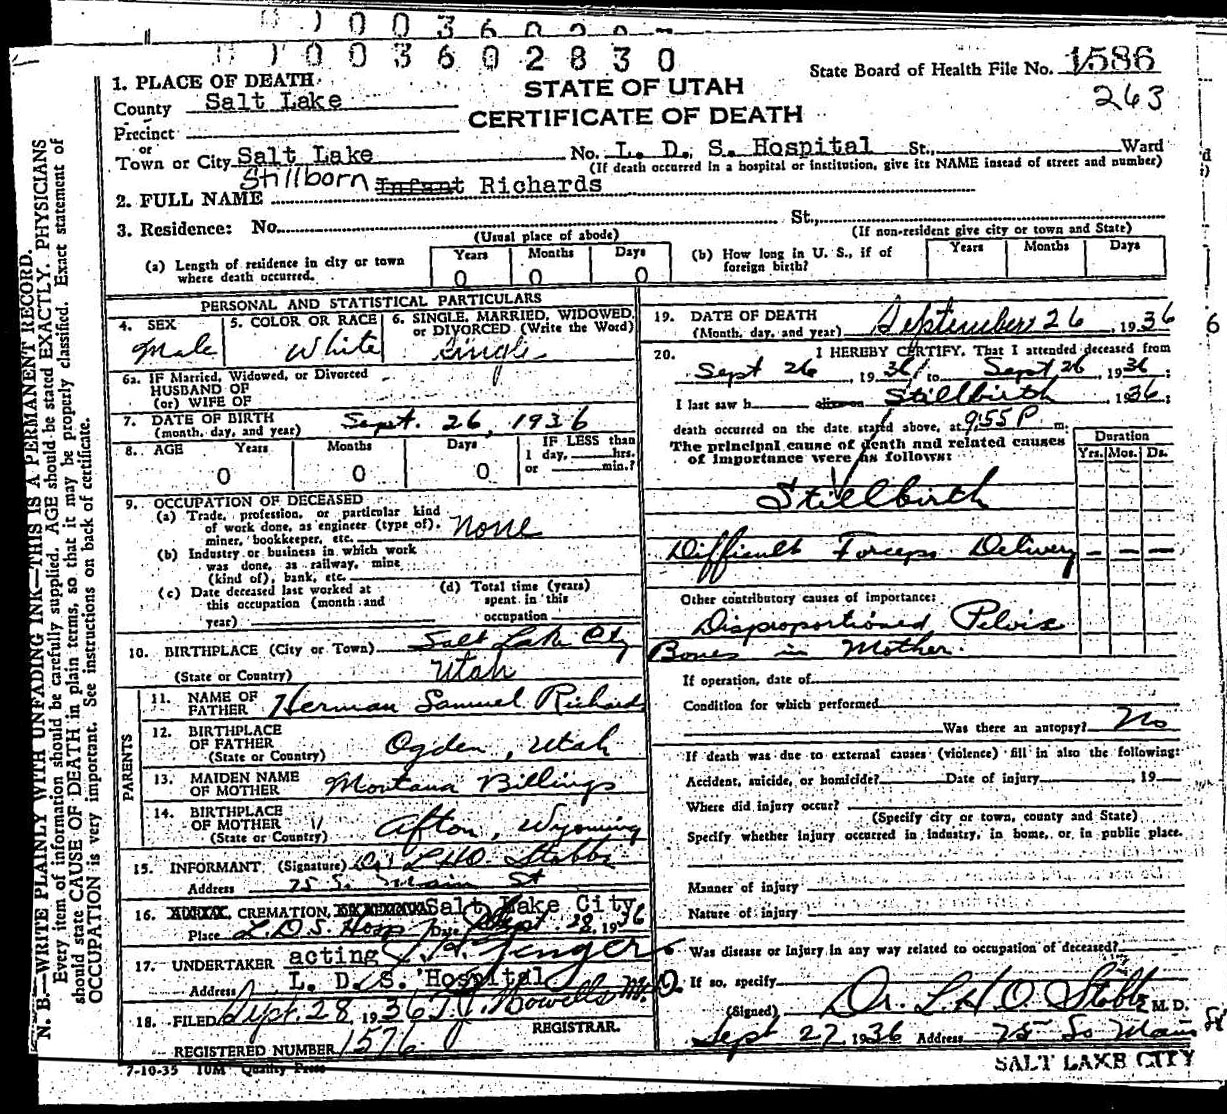 0 0 0 3 6 0 2 8 3 0
State Board of Health File No. 1586
263
STATE OF UTAH
CERTIFICATE OF DEATH
1. PLACE OF DEATH
County Salt Lake
Precinct
or
Town or City Salt Lake No. L. D. S. Hospital St., Ward
(If death occurred in a hospital or institution, give its NAME insead of street and number)
2. FULL NAME Stillborn Infant Richards
3. Residence: No. St.,
(Usual place of abode) (If non-resident give city or town and State)
(a) Length of residence in city or town where death occurred. Years 0 Months 0 Days 0
(b) How long in U. S., if of foreign birth? Years Months Days
PERSONAL AND STATISTICAL PARTICULARS
4. SEX Male
5. COLOR OR RACE White
6. SINGLE, MARRIED, WIDOWED, or DIVORCED (Write the Word) Single
6a. IF Married, Widowed, or Divorced
HUSBAND OF
(or) WIFE OF
7. DATE OF BIRTH (month, day, and year) Sept. 26, 1936
8. AGE Years 0 Months 0 Days 0 IF LESS than 1 day, hrs. or min.?
9. OCCUPATION OF DECEASED
(a) Trade, profession, or particular kind of work done, as engineer (type of), miner, bookkeeper, etc. none
(b) Industry or business in which work was done, as railway, mine (kind of), bank, etc.
(c) Date deceased last worked at this occupation (month and year)
(d) Total time (years) spent in this occupation
10. BIRTHPLACE (City or Town) Salt Lake City
(State or Country) Utah
PARENTS
11. NAME OF FATHER Herman Samuel Richards
12. BIRTHPLACE OF FATHER (State or Country) Ogden, Utah
13. MAIDEN NAME OF MOTHER Montana Billings
14. BIRTHPLACE OF MOTHER (State or Country) Afton, Wyoming
15. INFORMANT (Signature) Dr. L H O Stobbe
Address 75 S. Main St
16. CREMATION, Salt Lake City
Place L.D.S. Hosp Date Sept. 28, 1936
17. UNDERTAKER acting
Address L. D. S. Hospital
18. FILED Sept. 28 1936 T.J. Howells M.D.
REGISTRAR.
REGISTERED NUMBER 1576
7-10-35 10M Quality Press
19. DATE OF DEATH (Month, day, and year) September 26, 1936
20. I HEREBY CERTIFY, That I attended deceased from
Sept 26, 1936, to Sept 26, 1936;
I last saw h alive on Stillbirth, 1936;
death occurred on the date stated above, at 9:55 P m.
The principal cause of death and related causes of importance were as follows:
Duration
Yrs. Mos. Ds.
Stillbirth
Difficult Forceps Delivery - - -
Other contributory causes of importance:
Disproportioned Pelvic
Bones in Mother.
If operation, date of
Condition for which performed
Was there an autopsy? No
If death was due to external causes (violence) fill in also the following:
Accident, suicide, or homicide? Date of injury , 19
Where did injury occur?
(Specify city or town, county and State)
Specify whether injury occurred in industry, in home, or in public place.
Manner of injury
Nature of injury
Was disease or injury in any way related to occupation of deceased?
If so, specify
(Signed) Dr. L H O Stobbe M. D.
Sept 27, 1936 Address 75 So Main St
SALT LAKE CITY
N. B.—WRITE PLAINLY WITH UNFADING INK—THIS IS A PERMANENT RECORD.
Every item of information should be carefully supplied. AGE should be stated EXACTLY. PHYSICIANS
should state CAUSE OF DEATH in plain terms, so that it may be properly classified. Exact statement of
OCCUPATION is very important. See instructions on back of certificate.